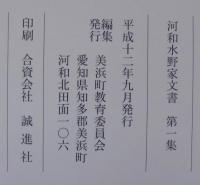 河和水野家文書　第一集
平成十二年九月発行
編集
発行　美浜町教育委員会
愛知県知多郡美浜町
河和北田面一〇六
印刷　合資会社　誠進社